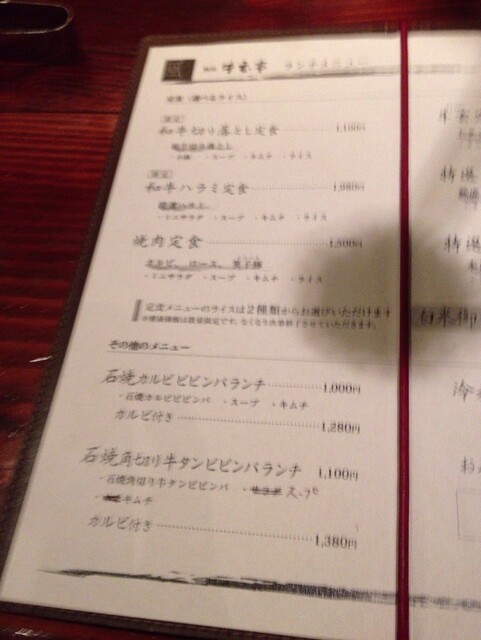 ランチメニュー
定食（選べるライス）
限定
和牛切り落とし定食 1,180円
・スープ ・キムチ ・ライス
限定
和牛ハラミ定食 1,980円
・ミニサラダ ・スープ ・キムチ ・ライス
焼肉定食 1,500円
カルビ、ロース、
・ミニサラダ ・スープ ・キムチ ・ライス
定食メニューのライスは2種類からお選びいただけます
その他のメニュー
石焼カルビビビンバランチ 1,000円
・石焼カルビビビンバ ・スープ ・キムチ
カルビ付き 1,280円
石焼角切り牛タンビビンバランチ 1,100円
・石焼角切り牛タンビビンバ ・サラダ スープ
キムチ
カルビ付き 1,380円
特選
特選
白米御